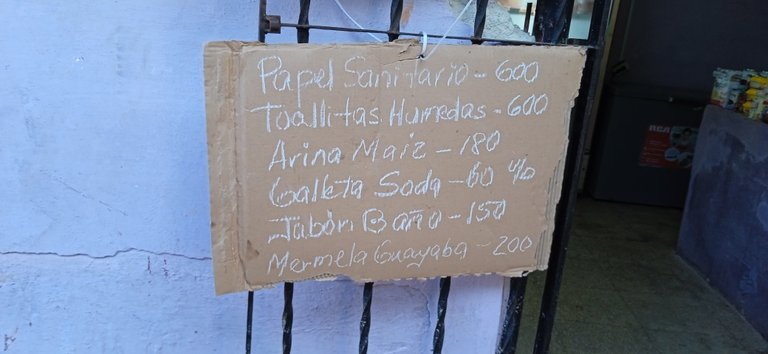 Papel Sanitario - 600
Toallitas Humedas - 600
Arina Maiz - 180
Galleta Soda - 60 %
Jabón Baño - 150
Mermela Guayaba - 200
RCA